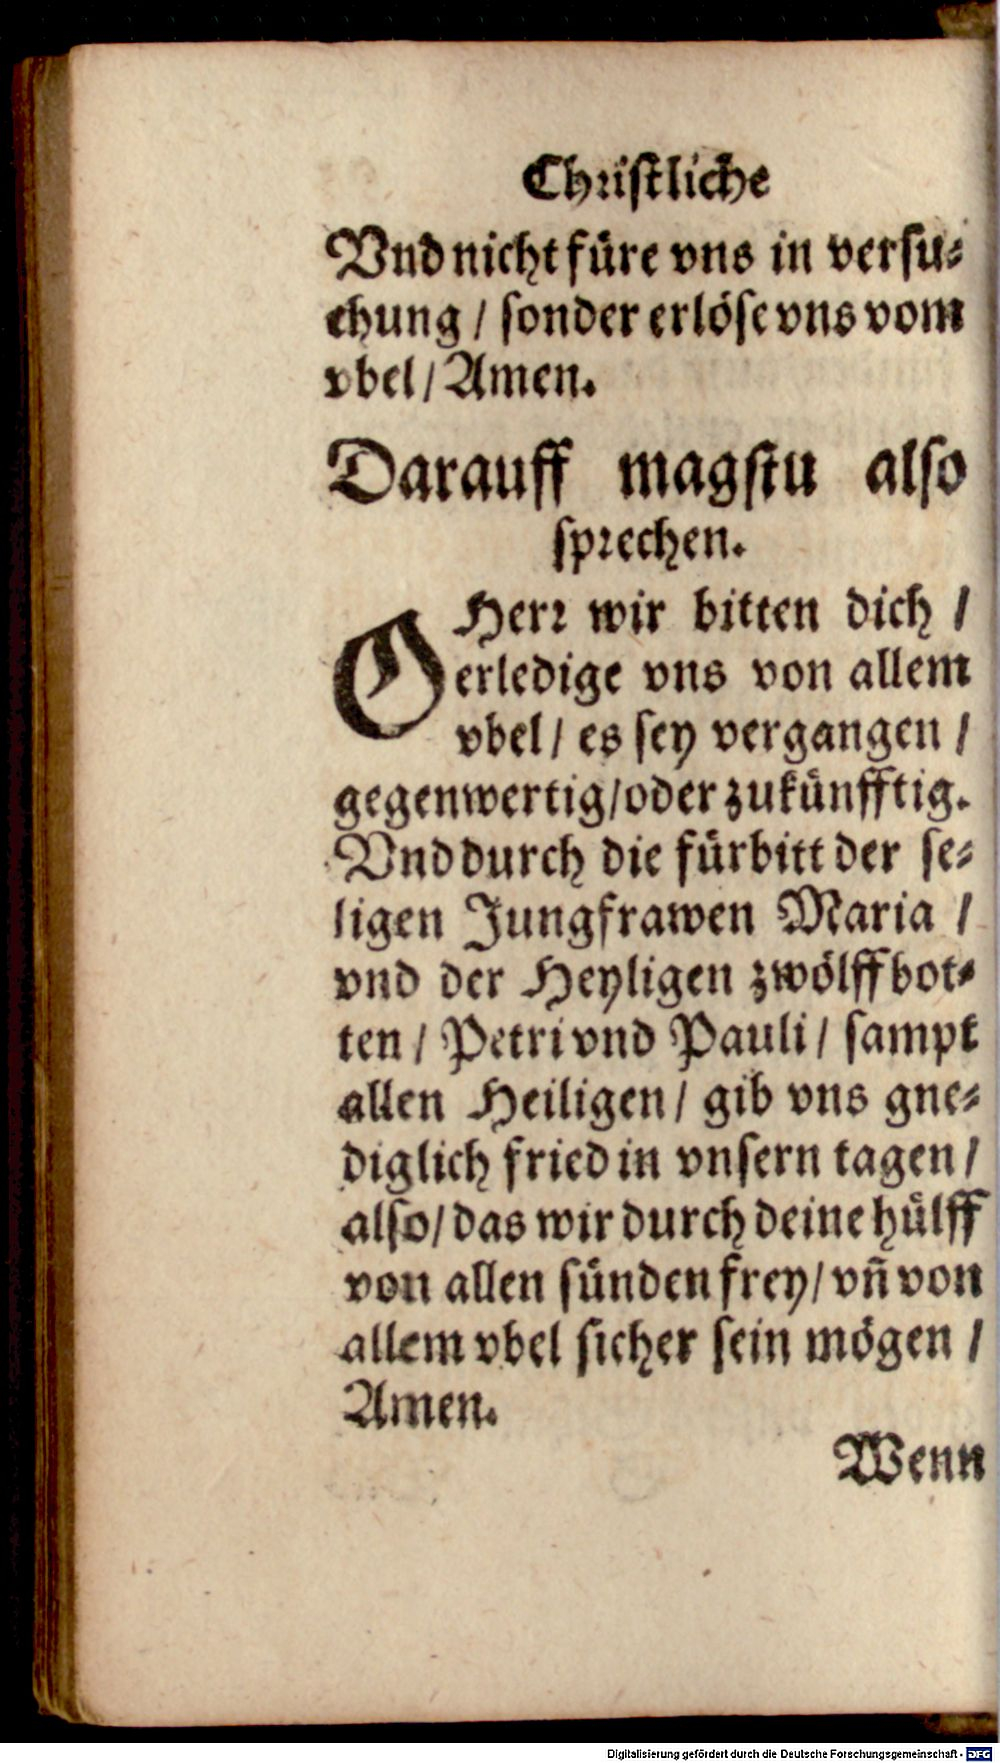 Christliche
Vnd nicht füre vns in versu-
chung / sonder erlöse vns vom
vbel / Amen.
Darauff magstu also
sprechen.
O Herr wir bitten dich /
erledige vns von allem
vbel / es sey vergangen /
gegenwertig / oder zukünfftig.
Vnd durch die fürbitt der se-
ligen Jungfrawen Maria /
vnd der Heyligen zwölffbot-
ten / Petri vnd Pauli / sampt
allen Heiligen / gib vns gne-
diglich fried in vnsern tagen /
also / das wir durch deine hülff
von allen sünden frey / vñ von
allem vbel sicher sein mögen /
Amen.
Wenn
Digitalisierung gefördert durch die Deutsche Forschungsgemeinschaft - DFG